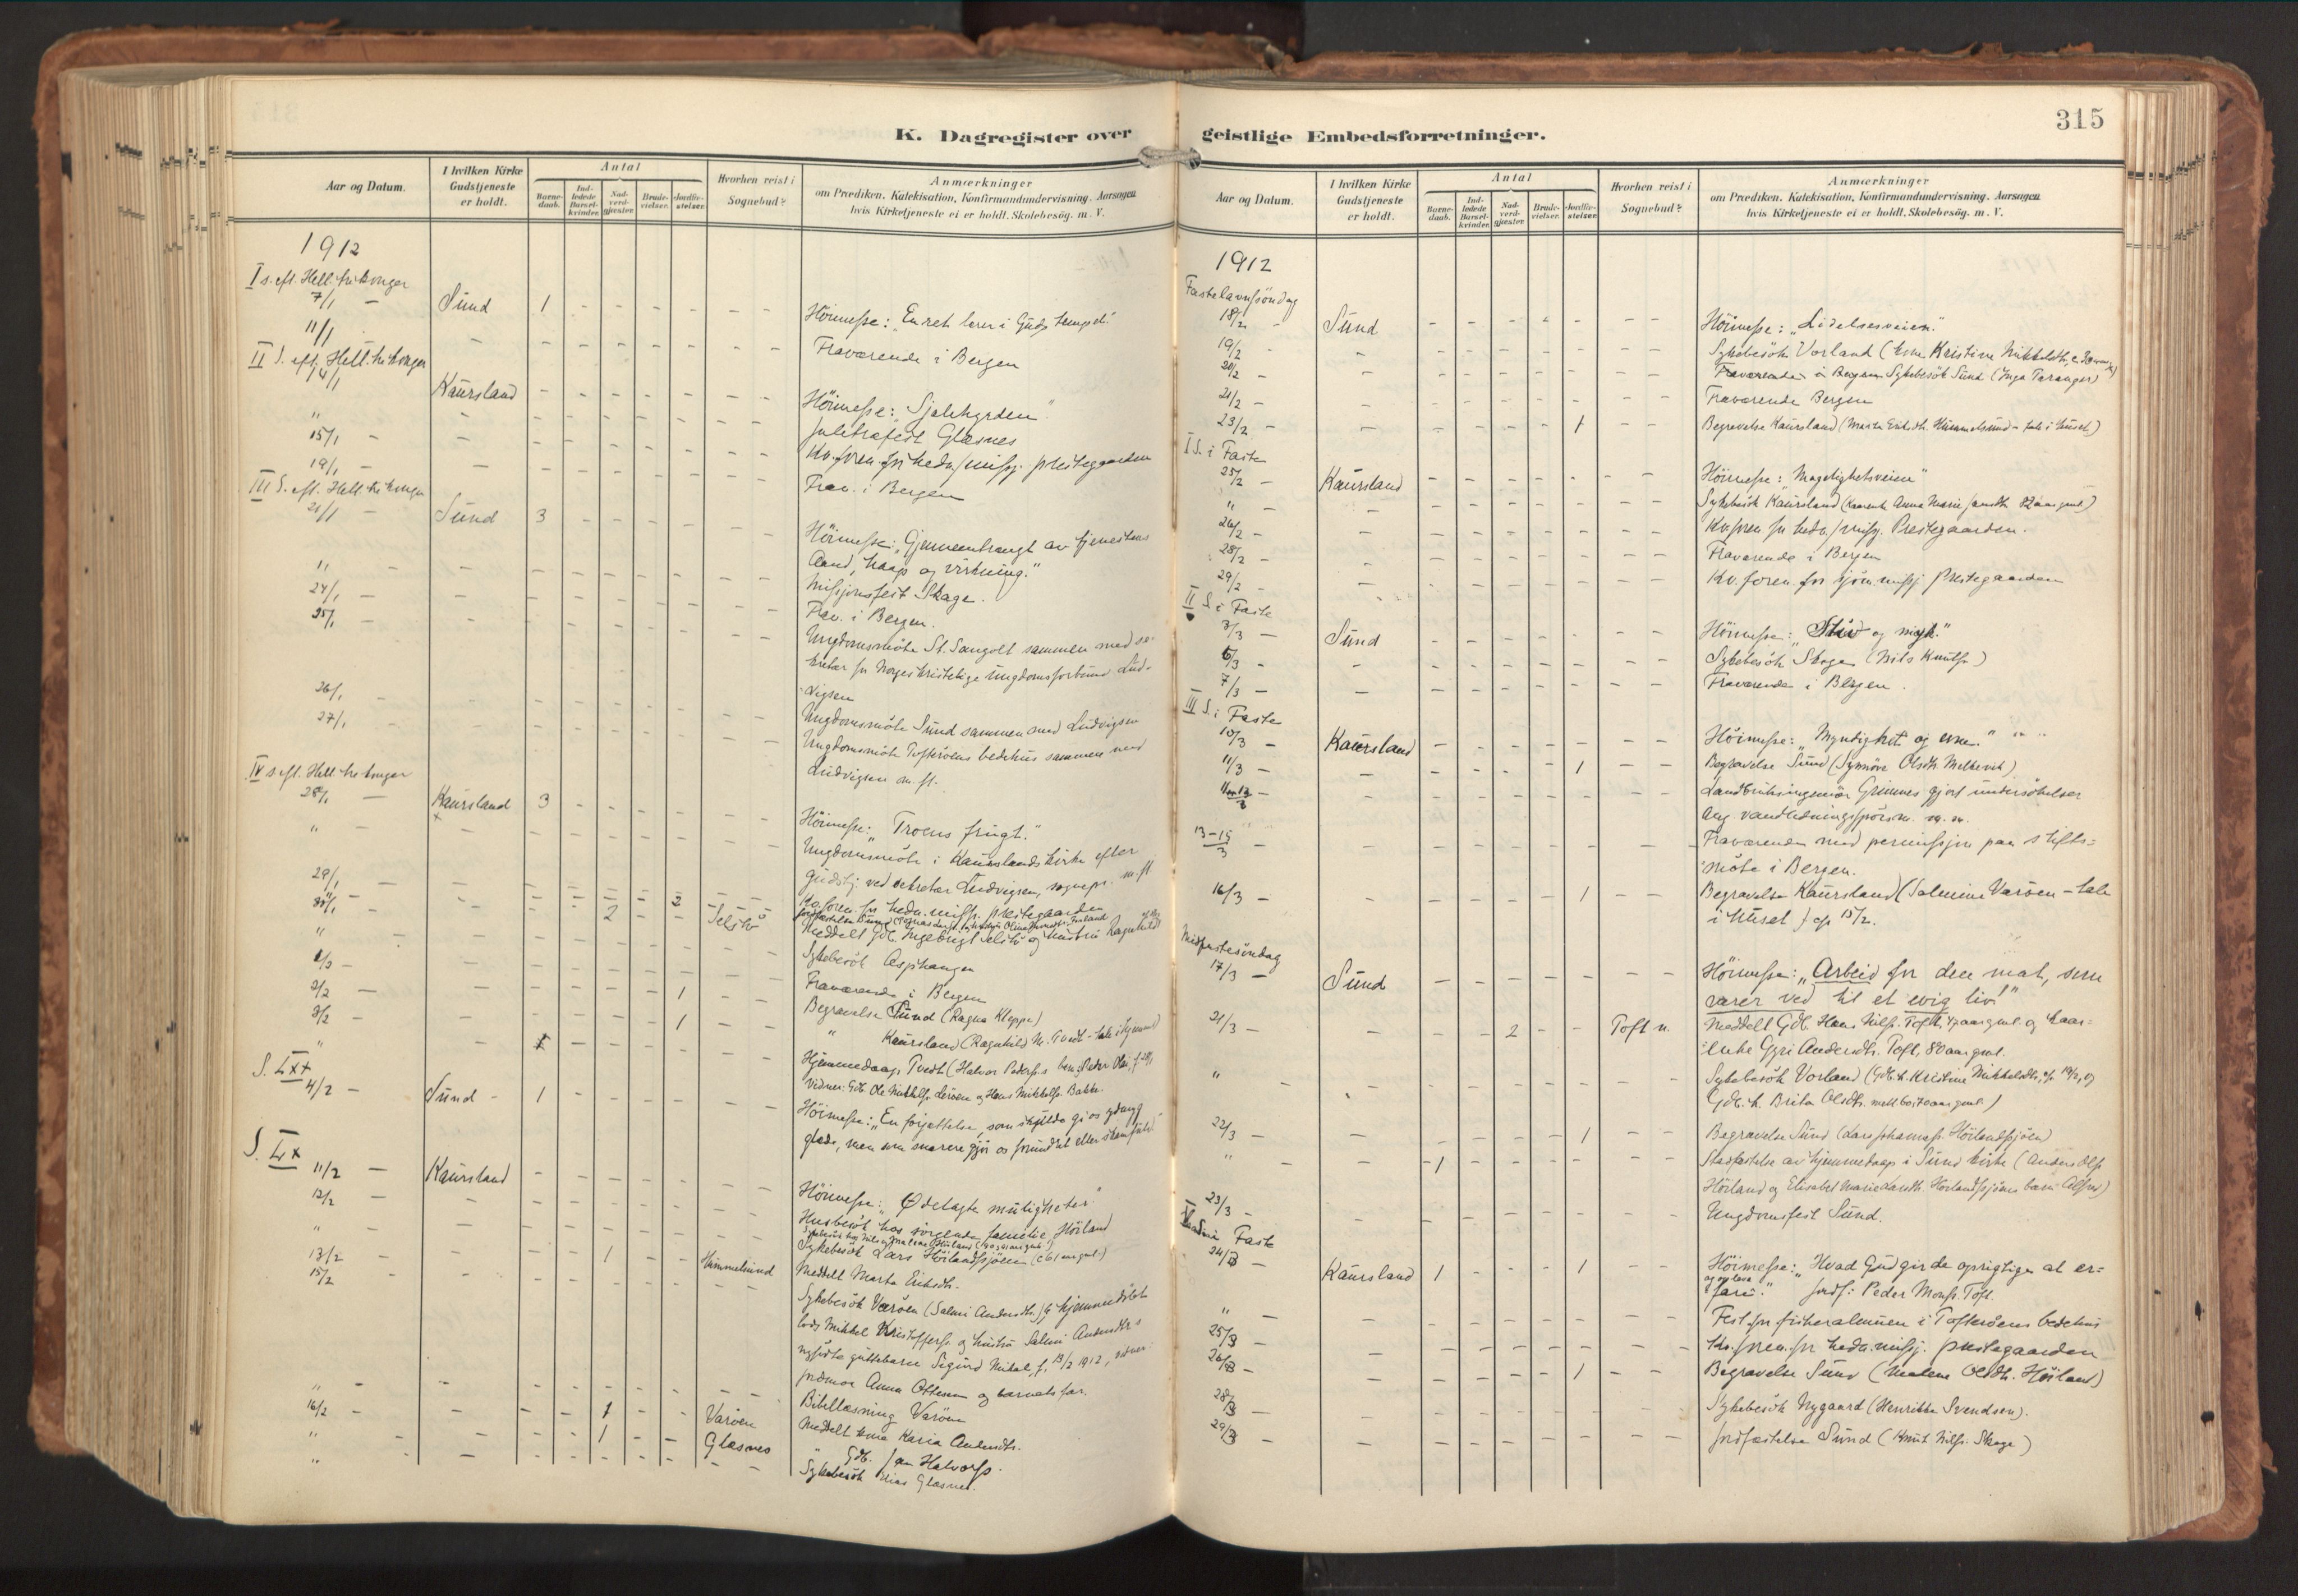 K. Dagregister over
Aar og Datum.
I hvilken Kirke Gudstjeneste er holdt.
Antal
Barnedaab.
Indledede Barselkvinder.
Nadverdgjester.
Brudevielser.
Jordfæstelser.
Hvorhen reist i Sognebud?
Anmærkninger
om Prædiken, Katekisation, Konfirmandundervisning, Aarsagen
hvis Kirketjeneste ei er holdt, Skolebesög. m. V.
1912
I s. eft. Hell. tre konger
7/1 Sund 1 Höimesse: "En ret lærer i Guds tempel."
11/1 Fraværende i Bergen
II S. eft. Hell. tre konger
14/1 Kaursland Höimesse: "Sjælehyrden"
" Juletræfest Glæsnes
15/1 Kv.foren. for hedn/missj. prestegaarden
19/1 Frav. i Bergen
III S. eft. Hell. tre konger
21/1 Sund 3 Höimesse: "Gjennemtrængt av tjenestens
Aand, haap og virkning."
" Missjonsfest Skage.
24/1 Frav. i Bergen.
25/1 Ungdomsmöte St. Sangolt sammen med se-
kretær for Norges kristelige ungdomsforbund Lud-
vigsen
26/1 Ungdomsmöte Sund sammen med Ludvigsen
27/1 Ungdomsmöte Tofteröens bedehus sammen med
Ludvigsen m. fl.
IV s. eft. Hell. tre konger
28/1 Kaursland 3 Höimesse: "Troens frugt."
" Ungdomsmöte i Kauslands kirke efter
gudstj. ved sekretær Ludvigsen, sognepr. m. fl.
29/1 Kv.foren. for hedn. missj. prestegaarden
2
30/1 2 Meddelt Gdb. Ingebrigt og hustru Ragnhild
" Sykebesök Asphaugen
Fraværende i Bergen
2/2 1 Begravelse Sund (Ragna Kleppe)
3/2 1 " Kaursland (Ragnhild M. Tvedt - tale i hjemmet)
" Hjemmedaap Tvedt (Halvor Peders.s barn: Peder
Vidner: Gdb. Ole Mikkels. Leröen og Hans Mikkels. Bakke.
S. Lxx
4/2 Sund 1 Höimesse: "En forjættelse, som skulde gi os ydmyg
glæde, men som snarere gjör os forundret eller skamfuld"
S. Lx
11/2 Kaursland Höimesse: "Ödelagte muligheter."
12/2 Husbesök hos sörgende familie, Höiland
" Sykebesök Lars Höilandssjöen (c 61 aar gml.)
13/2 1 Himmelsund Meddelt Marta Eriksdt.
15/2 Sykebesök Varöen (Salmi Andersdtr.) & hjemmedöbt
hos Mikkel Kristoffers. og hustru Salmi Andersdtr.s
nyfödte guttebarn Sigurd Mikal, f. 13/2 1912, vidner:
jordmor Anna Ottesen og barnets far.
" Bibellæsning Varöen
16/2 1 Varöen Meddelt kone Karia Andersdtr.
" 1 Glæsnes " Gdb. Jan Halvors.
" Sykebesök Glæsnes.
geistlige Embedsforretninger.
315
Aar og Datum.
I hvilken Kirke Gudstjeneste er holdt.
Antal
Barnedaab.
Indledede Barselkvinder.
Nadverdgjester.
Brudevielser.
Jordfæstelser.
Hvorhen reist i Sognebud?
Anmærkninger
om Prædiken, Katekisation, Konfirmandundervisning, Aarsagen
hvis Kirketjeneste ei er holdt, Skolebesög. m. V.
1912
Fastelavnssöndag
18/2 Sund Höimesse: "Lidelsesveien."
19/2 Sykebesök Vorland (kone Kristine Mikkelsdtr.
20/2 Sykebesök Sund (Inga Taranger)
21/2 Fraværende Bergen
23/2 1 Begravelse Kaursland (Marta Eriksdt. Himmelsund - tale i huset)
I S. i Faste
25/2 Kaursland Höimesse: "Magelighetsveien"
" Sykebesök Kaursland (Anna Marie Jansdt. 82 aar gml)
26/2 Kv.foren. for hedn/missj. Prestegaarden.
28/2 Fraværende i Bergen
29/2 Kv. foren. for sjömmissj. prestegaarden
II S. i Faste
3/3 Sund Höimesse: "Stiv og myk."
6/3 Sykebesök Skoge (Nils Knuts.)
7/3 Fraværende i Bergen.
III S. i Faste
10/3 Kaursland Höimesse: "Myndighet og evne."
11/3 1 Begravelse Sund (Synnöve Olsdt. Melkevik)
11 og 12/3 Landbruksingeniör Grimnes gjort undersökelser
ang. vandledningsspörsm. m. m.
13-15/3 Fraværende med permissjon paa stifts-
möte i Bergen.
16/3 1 Begravelse Kaursland (Salmine Varöen - tale
i huset) cfr 15/2.
Midfastesöndag
17/3 Sund Höimesse: "Arbeid for den mat, som
varer ved til et evig liv!"
21/3 2 Toft n. Meddelt Gdb. Hans Nils. Toft, aar gml. og kaar-
enke Gyri Andersdtr. Toft, 80 aar gml.
" Sykebesök Vorland (Gdb. k. Kristine Mikkelsdtr. cfr 19/2, og
Gdb. k. Brita Olsdtr. mell. 60-70 aar gml.)
22/3 1 Begravelse Sund (Lars Johannes. Höilandssjöen)
" 1 Stadfæstelse av hjemmedaap i Sund kirke (Anders Ols.
Höiland og Elisabet Marie Larsdt. Höilandssjöens barn: Alfred)
23/3 Ungdomsfest Sund.
V S. i Faste
24/3 Kaursland 1 1 Höimesse: "Hvad Gud gir de oprigtige at er-
fare og opleve." Jordf: Peder Mons. Toft.
" Fest for fiskeralmuen i Tofteröens bedehus
25/3 Kv.foren. for hedn. missj. prestegaarden
26/3 1 Begravelse Sund (Malene Olsdt. Höiland)
28/3 Sykebesök Nygaard (Henrikke Svendsen).
29/3 Jordfæstelse Sund (Knut Nils. Skoge)